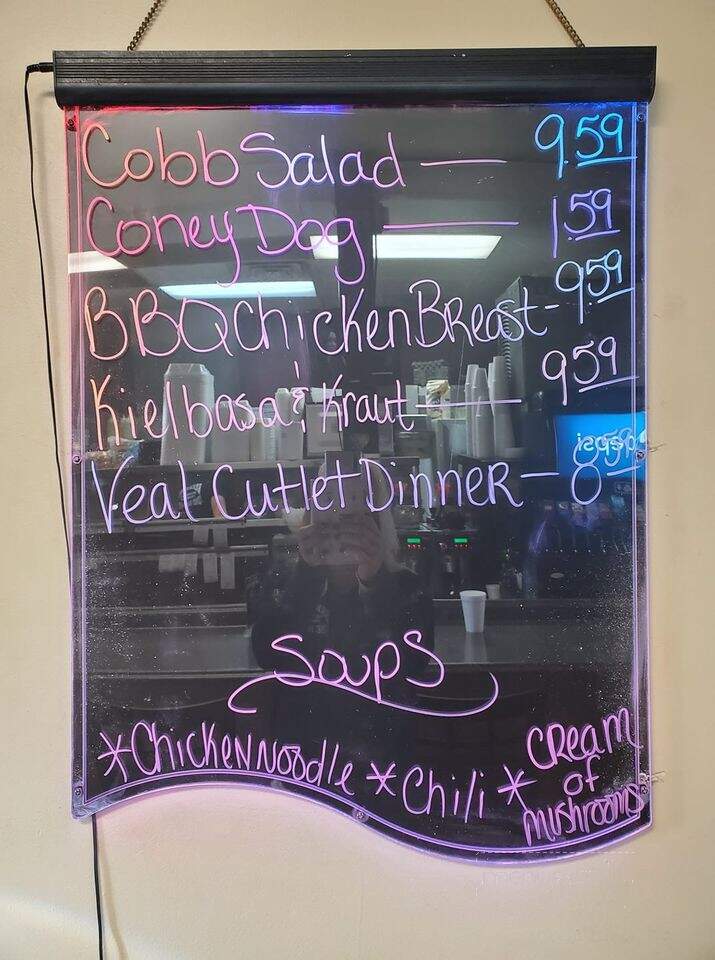 Cobb Salad — 9.59
Coney Dog — 1.59
BBQ Chicken Breast - 9.59
Kielbasa & Kraut — 9.59
Veal Cutlet Dinner - 8.59
Soups
*Chicken Noodle *Chili *Cream of Mushrooms
pepsi